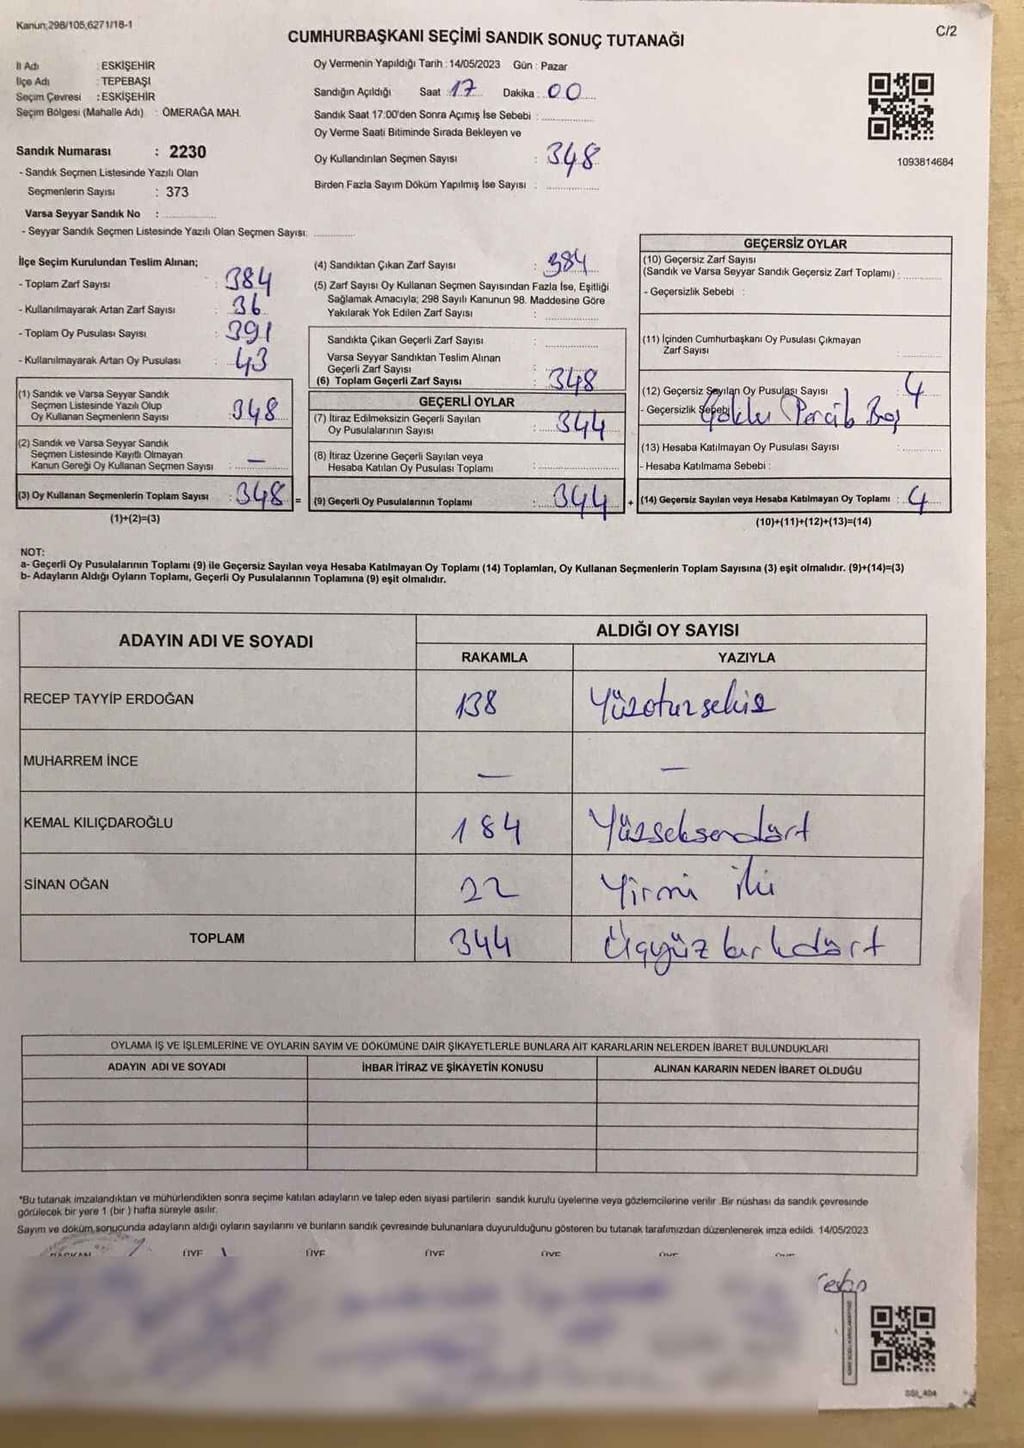 Kanun;298/105,6271/18-1
C/2
CUMHURBAŞKANI SEÇİMİ SANDIK SONUÇ TUTANAĞI
İl Adı : ESKİŞEHİR
İlçe Adı : TEPEBAŞI
Seçim Çevresi : ESKİŞEHİR
Seçim Bölgesi (Mahalle Adı) : ÖMERAĞA MAH.
Sandık Numarası : 2230
- Sandık Seçmen Listesinde Yazılı Olan
Seçmenlerin Sayısı : 373
Varsa Seyyar Sandık No :
- Seyyar Sandık Seçmen Listesinde Yazılı Olan Seçmen Sayısı:
Oy Vermenin Yapıldığı Tarih : 14/05/2023 Gün : Pazar
Sandığın Açıldığı Saat : 17 Dakika : 00
Sandık Saat 17:00'den Sonra Açımış İse Sebebi :
Oy Verme Saati Bitiminde Sırada Bekleyen ve
Oy Kullandırılan Seçmen Sayısı : 348
Birden Fazla Sayım Döküm Yapılmış İse Sayısı :
1093814684
İlçe Seçim Kurulundan Teslim Alınan;
- Toplam Zarf Sayısı : 384
- Kullanılmayarak Artan Zarf Sayısı : 36
- Toplam Oy Pusulası Sayısı : 391
- Kullanılmayarak Artan Oy Pusulası : 43
(1) Sandık ve Varsa Seyyar Sandık
Seçmen Listesinde Yazılı Olup
Oy Kullanan Seçmenlerin Sayısı : 348
(2) Sandık ve Varsa Seyyar Sandık
Seçmen Listesinde Kayıtlı Olmayan
Kanun Gereği Oy Kullanan Seçmen Sayısı : —
(3) Oy Kullanan Seçmenlerin Toplam Sayısı : 348 =
(1)+(2)=(3)
(4) Sandıktan Çıkan Zarf Sayısı : 384
(5) Zarf Sayısı Oy Kullanan Seçmen Sayısından Fazla İse, Eşitliği
Sağlamak Amacıyla; 298 Sayılı Kanunun 98. Maddesine Göre
Yakılarak Yok Edilen Zarf Sayısı :
Sandıkta Çıkan Geçerli Zarf Sayısı :
Varsa Seyyar Sandıktan Teslim Alınan
Geçerli Zarf Sayısı :
(6) Toplam Geçerli Zarf Sayısı : 348
GEÇERLİ OYLAR
(7) İtiraz Edilmeksizin Geçerli Sayılan
Oy Pusulalarının Sayısı : 344
(8) İtiraz Üzerine Geçerli Sayılan veya
Hesaba Katılan Oy Pusulası Toplamı :
(9) Geçerli Oy Pusulalarının Toplamı : 344 +
GEÇERSİZ OYLAR
(10) Geçersiz Zarf Sayısı
(Sandık ve Varsa Seyyar Sandık Geçersiz Zarf Toplamı) :
- Geçersizlik Sebebi :
(11) İçinden Cumhurbaşkanı Oy Pusulası Çıkmayan
Zarf Sayısı :
(12) Geçersiz Sayılan Oy Pusulası Sayısı : 4
- Geçersizlik Sebebi
(13) Hesaba Katılmayan Oy Pusulası Sayısı :
- Hesaba Katılmama Sebebi :
(14) Geçersiz Sayılan veya Hesaba Katılmayan Oy Toplamı : 4
(10)+(11)+(12)+(13)=(14)
NOT:
a- Geçerli Oy Pusulalarının Toplamı (9) ile Geçersiz Sayılan veya Hesaba Katılmayan Oy Toplamı (14) Toplamları, Oy Kullanan Seçmenlerin Toplam Sayısına (3) eşit olmalıdır. (9)+(14)=(3)
b- Adayların Aldığı Oyların Toplamı, Geçerli Oy Pusulalarının Toplamına (9) eşit olmalıdır.
ADAYIN ADI VE SOYADI
ALDIĞI OY SAYISI
RAKAMLA YAZIYLA
RECEP TAYYİP ERDOĞAN 138 Yüzotuzsekiz
MUHARREM İNCE — —
KEMAL KILIÇDAROĞLU 184 Yüzseksendört
SİNAN OĞAN 22 Yirmi iki
TOPLAM 344 Üçyüz kırkdört
OYLAMA İŞ VE İŞLEMLERİNE VE OYLARIN SAYIM VE DÖKÜMÜNE DAİR ŞİKAYETLERLE BUNLARA AİT KARARLARIN NELERDEN İBARET BULUNDUKLARI
ADAYIN ADI VE SOYADI İHBAR İTİRAZ VE ŞİKAYETİN KONUSU ALINAN KARARIN NEDEN İBARET OLDUĞU
*Bu tutanak imzalandıktan ve mühürlendikten sonra seçime katılan adayların ve talep eden siyasi partilerin sandık kurulu üyelerine veya gözlemcilerine verilir. Bir nüshası da sandık çevresinde
görülecek bir yere 1 (bir ) hafta süreyle asılır.
Sayım ve döküm sonucunda adayların aldığı oyların sayılarını ve bunların sandık çevresinde bulunanlara duyurulduğunu gösteren bu tutanak tarafımızdan düzenlenerek imza edildi. 14/05/2023
BAŞKAN ÜYE ÜYE ÜYE ÜYE